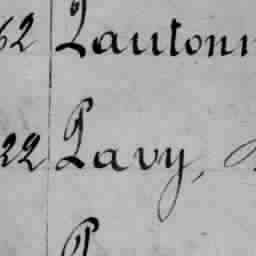 62 Lautoni
22 Pavy,